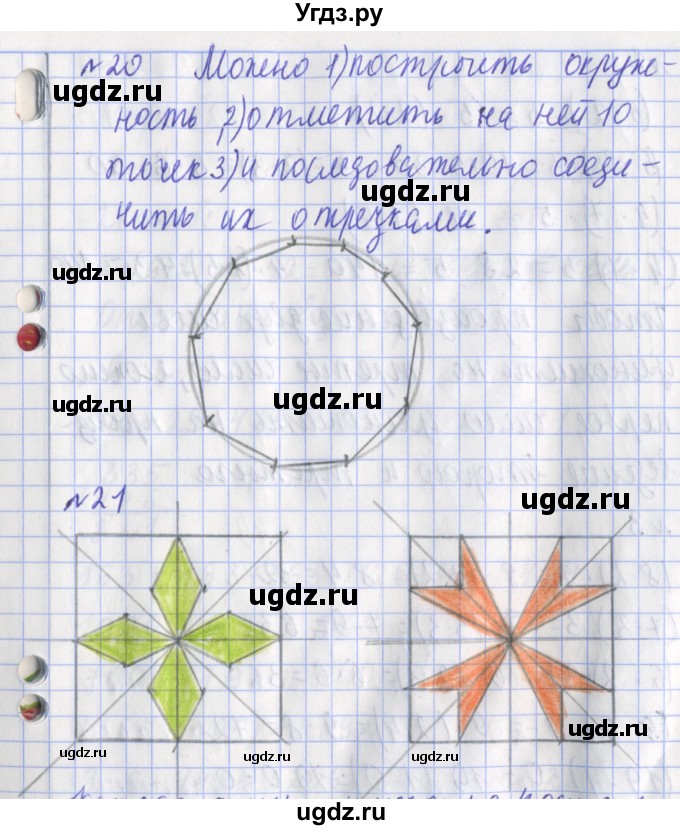 Угдз.ру
№20 Можно 1) построить окруж-
ugdz.ru
ность, 2) отметить на ней 10
точек 3) и последовательно соеди-
ugdz.ru
нить их отрезками.
ugdz.ru
ugdz.ru
ugdz.ru
ugdz.ru
№21
ugdz.ru
ugdz.ru
ugdz.ru
ugdz.ru
ugdz.ru
ugdz.ru